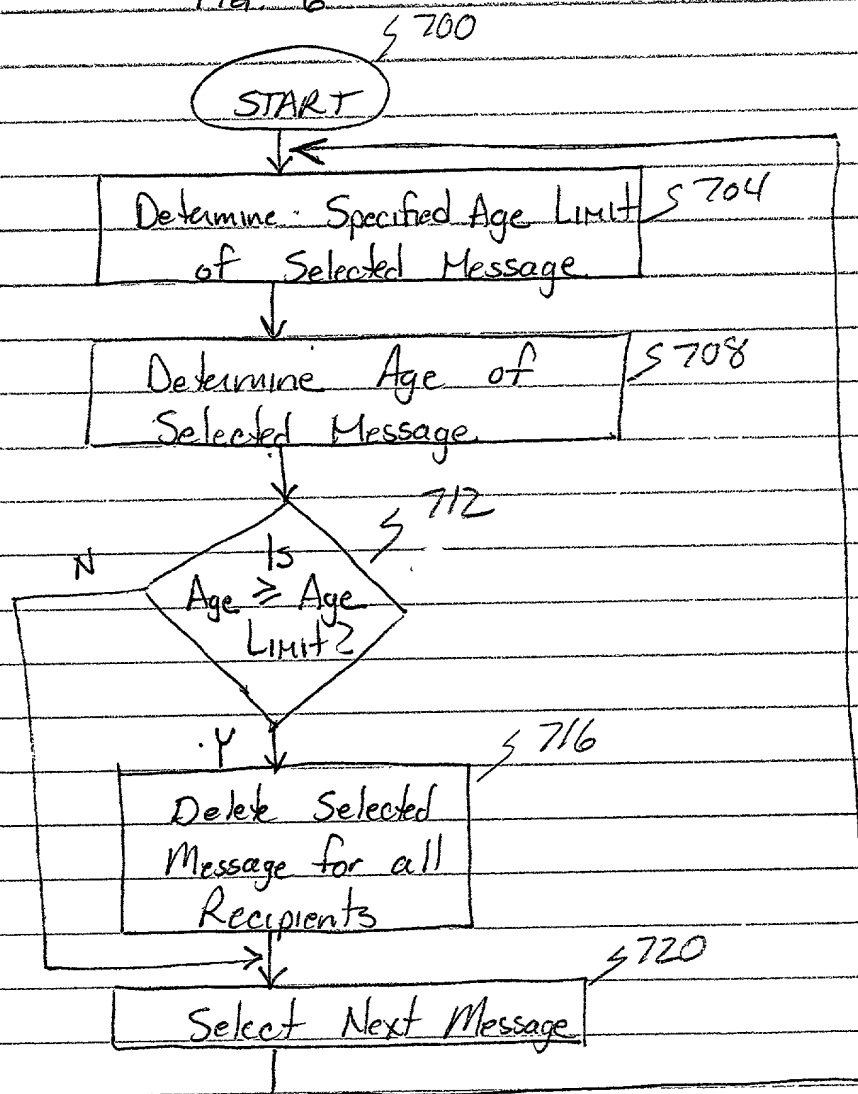 Fig. 6
700
START
Determine Specified Age Limit
of Selected Message
704
Determine Age of
Selected Message
708
712
N
Is
Age ≥ Age
Limit?
Y
716
Delete Selected
Message for all
Recipients
720
Select Next Message